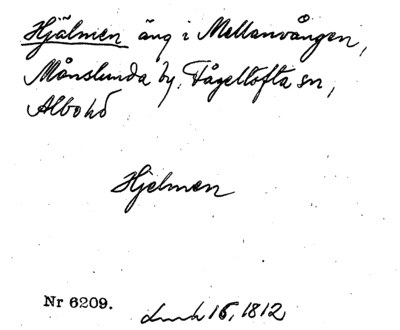 Hjälmen äng i Mellanvången,
Månslunda by, Fågeltofta sn,
Albo hd
Hjelmen
Nr 6209.
16, 1812